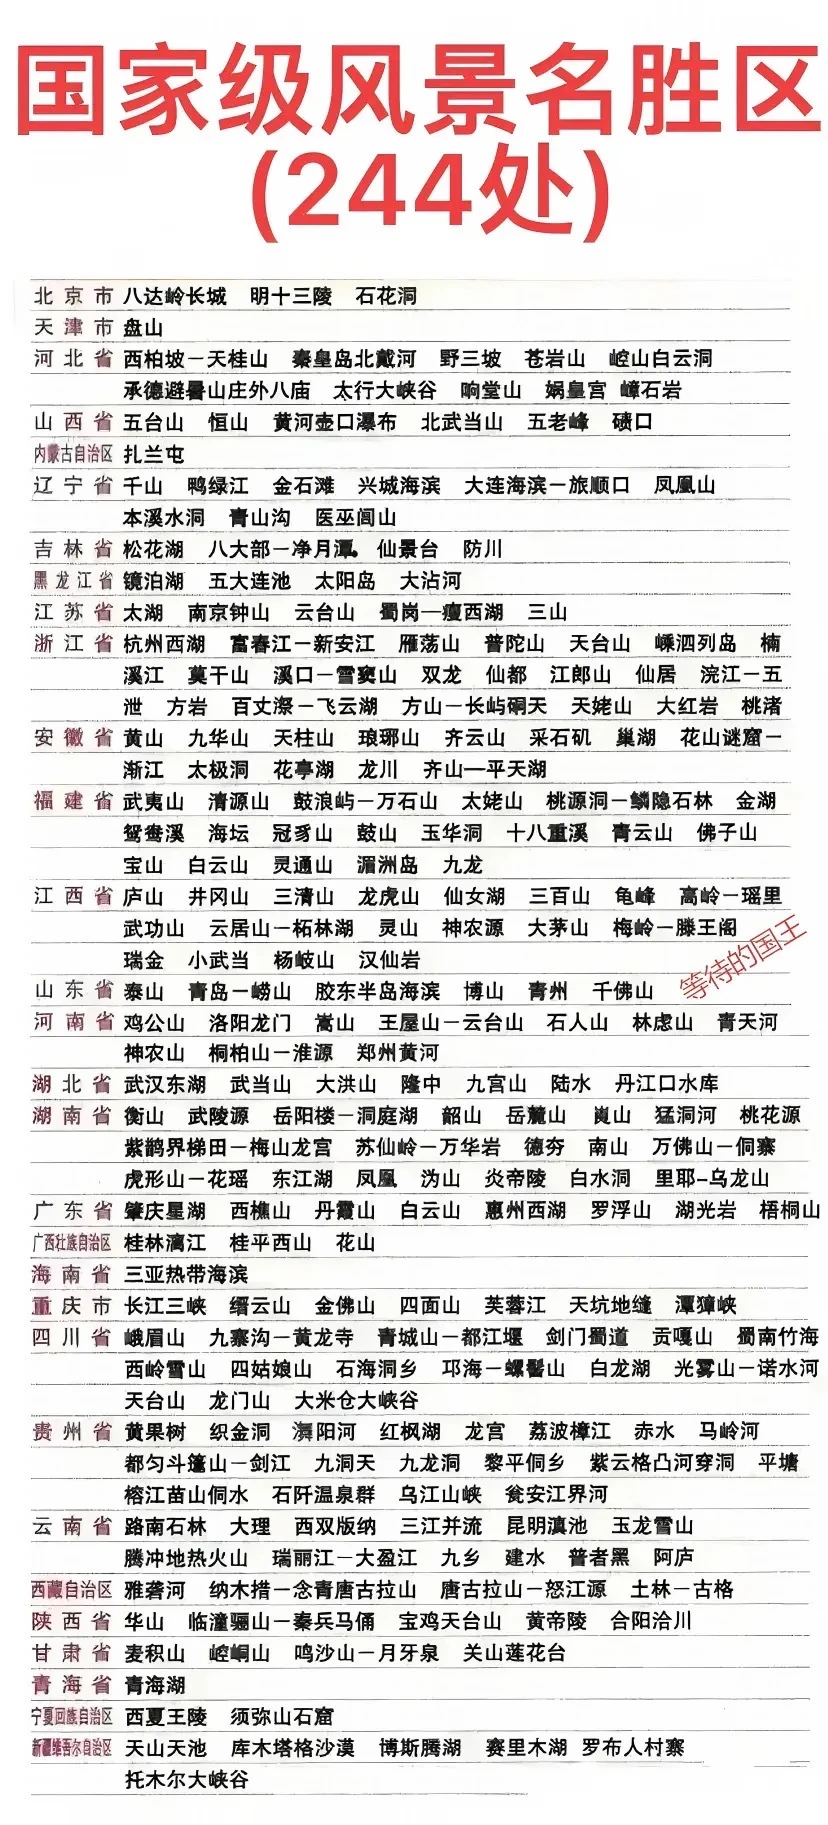 国家级风景名胜区
(244处)
北京市 八达岭长城 明十三陵 石花洞
天津市 盘山
河北省 西柏坡－天桂山 秦皇岛北戴河 野三坡 苍岩山 崆山白云洞
承德避暑山庄外八庙 太行大峡谷 响堂山 娲皇宫 嶂石岩
山西省 五台山 恒山 黄河壶口瀑布 北武当山 五老峰 碛口
内蒙古自治区 扎兰屯
辽宁省 千山 鸭绿江 金石滩 兴城海滨 大连海滨－旅顺口 凤凰山
本溪水洞 青山沟 医巫闾山
吉林省 松花湖 八大部－净月潭 仙景台 防川
黑龙江省 镜泊湖 五大连池 太阳岛 大沾河
江苏省 太湖 南京钟山 云台山 蜀岗—瘦西湖 三山
浙江省 杭州西湖 富春江－新安江 雁荡山 普陀山 天台山 嵊泗列岛 楠
溪江 莫干山 溪口－雪窦山 双龙 仙都 江郎山 仙居 浣江－五
泄 方岩 百丈漈－飞云湖 方山－长屿硐天 天姥山 大红岩 桃渚
安徽省 黄山 九华山 天柱山 琅琊山 齐云山 采石矶 巢湖 花山谜窟－
渐江 太极洞 花亭湖 龙川 齐山—平天湖
福建省 武夷山 清源山 鼓浪屿－万石山 太姥山 桃源洞－鳞隐石林 金湖
鸳鸯溪 海坛 冠豸山 鼓山 玉华洞 十八重溪 青云山 佛子山
宝山 白云山 灵通山 湄洲岛 九龙
江西省 庐山 井冈山 三清山 龙虎山 仙女湖 三百山 龟峰 高岭－瑶里
武功山 云居山－柘林湖 灵山 神农源 大茅山 梅岭－滕王阁
瑞金 小武当 杨岐山 汉仙岩
等待的国王
山东省 泰山 青岛－崂山 胶东半岛海滨 博山 青州 千佛山
河南省 鸡公山 洛阳龙门 嵩山 王屋山－云台山 石人山 林虑山 青天河
神农山 桐柏山－淮源 郑州黄河
湖北省 武汉东湖 武当山 大洪山 隆中 九宫山 陆水 丹江口水库
湖南省 衡山 武陵源 岳阳楼－洞庭湖 韶山 岳麓山 崀山 猛洞河 桃花源
紫鹊界梯田－梅山龙宫 苏仙岭－万华岩 德夯 南山 万佛山－侗寨
虎形山－花瑶 东江湖 凤凰 沩山 炎帝陵 白水洞 里耶–乌龙山
广东省 肇庆星湖 西樵山 丹霞山 白云山 惠州西湖 罗浮山 湖光岩 梧桐山
广西壮族自治区 桂林漓江 桂平西山 花山
海南省 三亚热带海滨
重庆市 长江三峡 缙云山 金佛山 四面山 芙蓉江 天坑地缝 潭獐峡
四川省 峨眉山 九寨沟－黄龙寺 青城山－都江堰 剑门蜀道 贡嘎山 蜀南竹海
西岭雪山 四姑娘山 石海洞乡 邛海－螺髻山 白龙湖 光雾山－诺水河
天台山 龙门山 大米仓大峡谷
贵州省 黄果树 织金洞 㵲阳河 红枫湖 龙宫 荔波樟江 赤水 马岭河
都匀斗篷山－剑江 九洞天 九龙洞 黎平侗乡 紫云格凸河穿洞 平塘
榕江苗山侗水 石阡温泉群 乌江山峡 瓮安江界河
云南省 路南石林 大理 西双版纳 三江并流 昆明滇池 玉龙雪山
腾冲地热火山 瑞丽江－大盈江 九乡 建水 普者黑 阿庐
西藏自治区 雅砻河 纳木措－念青唐古拉山 唐古拉山－怒江源 土林－古格
陕西省 华山 临潼骊山－秦兵马俑 宝鸡天台山 黄帝陵 合阳洽川
甘肃省 麦积山 崆峒山 鸣沙山－月牙泉 关山莲花台
青海省 青海湖
宁夏回族自治区 西夏王陵 须弥山石窟
新疆维吾尔自治区 天山天池 库木塔格沙漠 博斯腾湖 赛里木湖 罗布人村寨
托木尔大峡谷